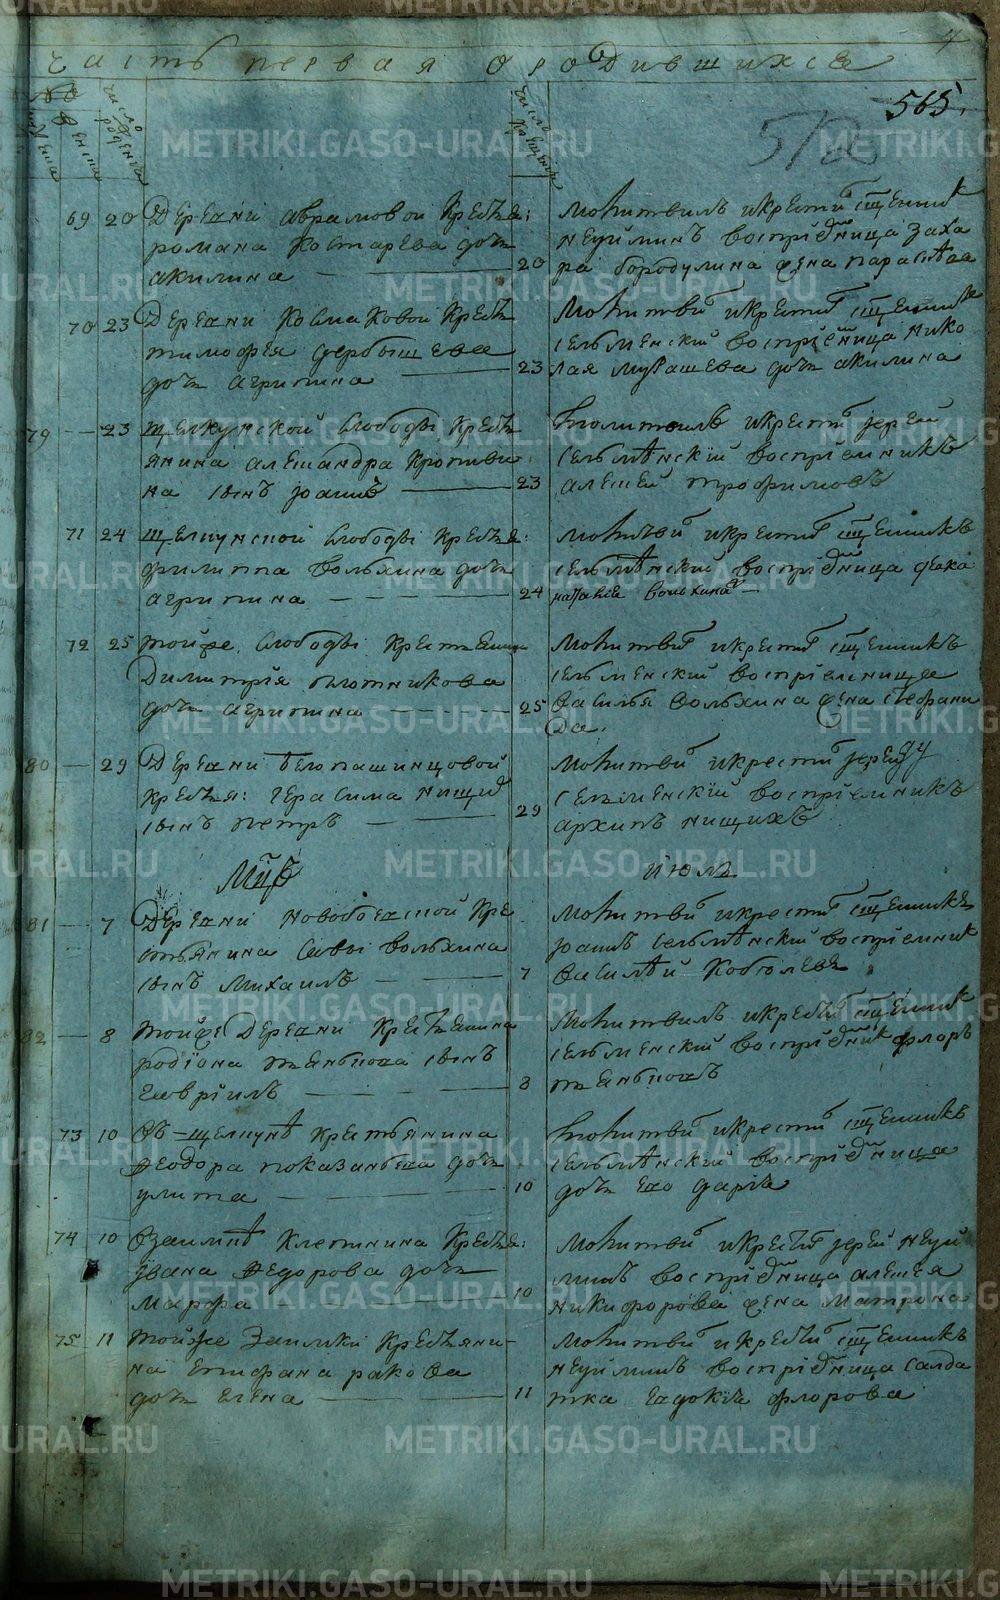 часть первая о родившихся
565.
572
мужеска
женска
число рождения
число крещения
69 20 Деревни Аврамовой крестья:
романа Костарева дочь
акилина 20
Молитвилъ и крестилъ священник
неуйминъ восприемница Заха
ра бородулина жена параскева
70 23 Деревни Космаковой крестья
тимофея дербышева
дочь агрипина 23
Молитвил и крестил священник
сельменский восприемница Нико
лая мурашева дочь акилина
79 23 щелкунской слободы кресть
янина александра кропиви
на сынъ иоаннъ 23
молитвилъ и крестил иерей
сельменский восприемникъ
алексей трофимовъ
71 24 щелкунской слободы крестья:
филиппа вольхина дочь
агрипина 24
Молитвил и крестил священникъ
сельменский восприемница девка
наталия вольхина
72 25 тойже слободы крестьянина
Димитрия плотникова
дочь агрипина 25
Молитвил и крестил священникъ
сельменский восприемница
василья вольхина жена стефани
да.
80 29 Деревни белопашинцовой
крестья: герасима нищих
сынъ петръ 29
Молитвил и крестил иерей
сельменский восприемникъ
архипъ нищихъ
Мцъ июль
81 7 Деревни новоболевской кре
стьянина Савы вольхина
сынъ Михаилъ 7
Молитвил и крестил священникъ
иоаннъ сельменский восприемник
василей кобылевъ
82 8 тойже Деревни крестьянина
родиона
сынъ
гавриилъ 8
Молитвилъ и крестил священник
сельменский восприемник флоръ
73 10 въ щелкуне крестьянина
Феодора показаньева дочь
улита 10
молитвил и крестил священникъ
сельменский восприемница
дочь его дарья
74 10 взаимке клепинина крестья:
ивана Федорова дочь
марфа 10
Молитвил и крестил иерей неуй
минъ восприемница алексея
никифорова жена матрона
75 11 тойже заимки крестьяни-
на епифана ракова
дочь елена 11
Молитвил и крестил священникъ
неуйминъ восприемница салда
тка евдокия флорова
METRIKI.GASO-URAL.RU